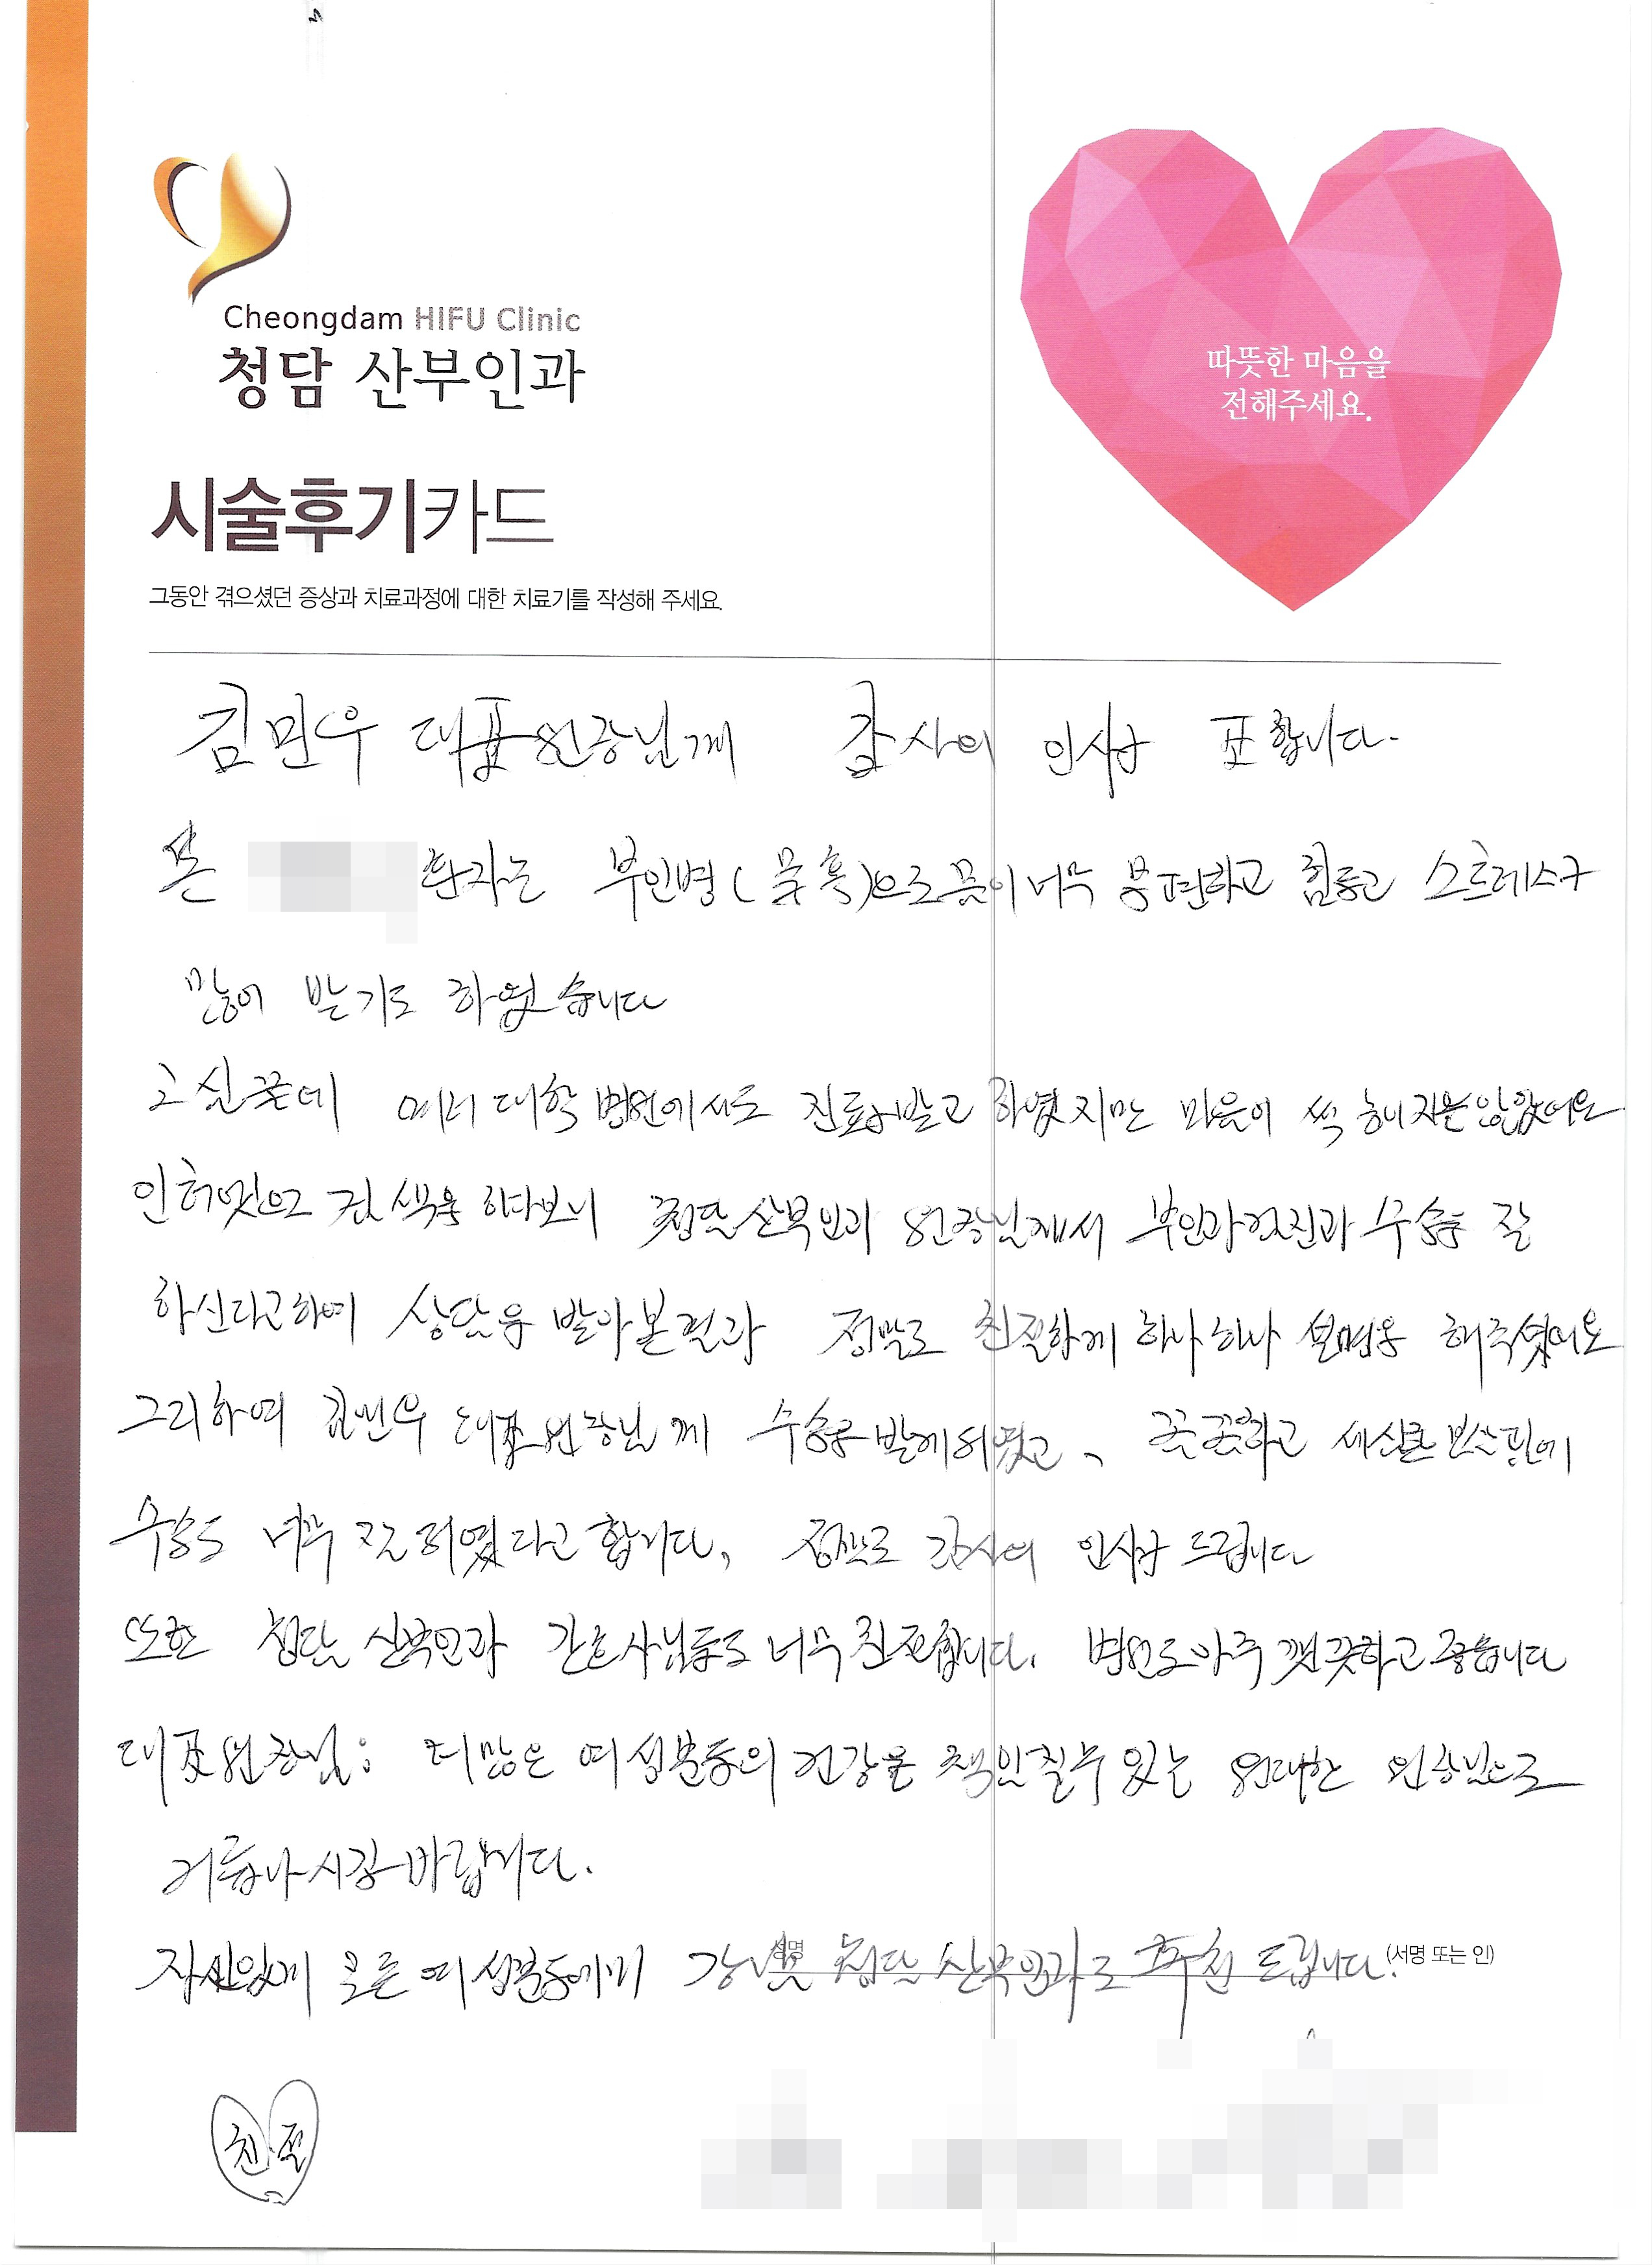 Cheongdam HIFU Clinic
청담 산부인과
따뜻한 마음을
전해주세요.
시술후기카드
그동안 겪으셨던 증상과 치료과정에 대한 치료기를 작성해 주세요.
김민우 대표원장님께 감사의 인사를 표합니다.
본 환자는 부인병( )으로 몸이 너무 불편하고 힘들고 스트레스를
많이 받기도 하였습니다
그 실은데 여러 대학 병원에서도 진료를 받고 하였지만 마음이 썩 내키지는 않았어요
인터넷으로 검색을 하다보니 청담산부인과 원장님께서 부인과검진과 수술을 잘
하신다고하여 상담을 받아본결과 정말로 친절하게 하나하나 설명을 해주셨어요
그리하여 김민우 대표원장님께 수술을 받게되었고、 꼼꼼하고 세심한 보살핌에
수술도 너무 잘 되였다고 합니다, 정말로 감사의 인사를 드립니다
또한 청담 산부인과 간호사님들도 너무 친절합니다. 병원도 아주 깨끗하고 좋습니다
대표원장님: 더많은 여성분들의 건강을 책임질수 있는 위대한 원장님으로
거듭나시길 바랍니다.
자신있게 모든 여성분들에게 강남 청담 산부인과로 추천 드립니다.
성명
(서명 또는 인)
친절